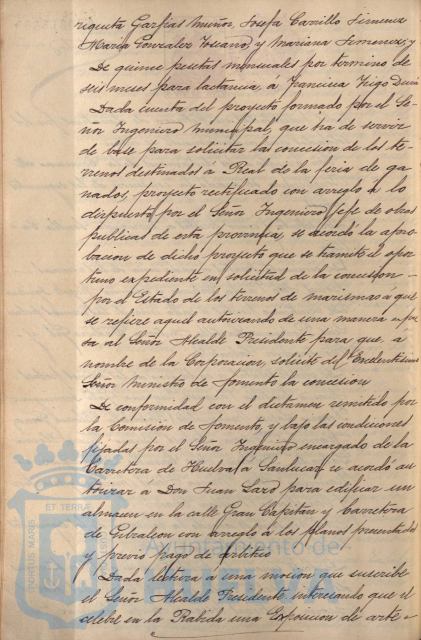 riqueta Garfias Muñoz, Josefa Carrillo Jimenez
Maria Gonzalez Toscano, y Mariana Jimenez; y
De quince pesetas mensuales por termino de
seis meses para lactancia, á Francisca Trigo
Dada cuenta del proyecto formado por el Se-
ñor Ingeniero Municipal, que ha de servir
de base para solicitar la concesion de los te-
rrenos destinados a Real de la feria de ga-
nados, proyecto rectificado con arreglo a lo
dispuesto por el Señor Ingeniero Jefe de obras
publicas de esta provincia, se acordó la apro-
bacion de dicho proyecto que se tramite el opor-
tuno expediente en solicitud de la concesion
por el Estado de los terrenos de marismas á que
se refiere aquel autorizando de una manera expre
sa al Señor Alcalde Presidente para que, a
nombre de la Corporacion, solicite del Excelentisimo
Señor Ministro de Fomento la concesion
De conformidad con el dictamen remitido por
la Comision de Fomento, y bajo las condiciones
fijadas por el Señor Ingeniero encargado de la
Carretera de Huelva á Sanlucar se acordó au
torizar á Don Juan Lazo para edificar un
almacen en la calle Gran Capitan y Carretera
de Gibraleon con arreglo á los planos presentados
y previo pago de arbitrio
Dada lectura a una mocion que suscribe
el Señor Alcalde Presidente interesando que se
celebre en la Rabida una Exposicion de arte
PORTUS MARIS
ET TERRÆ
Ayuntamiento de